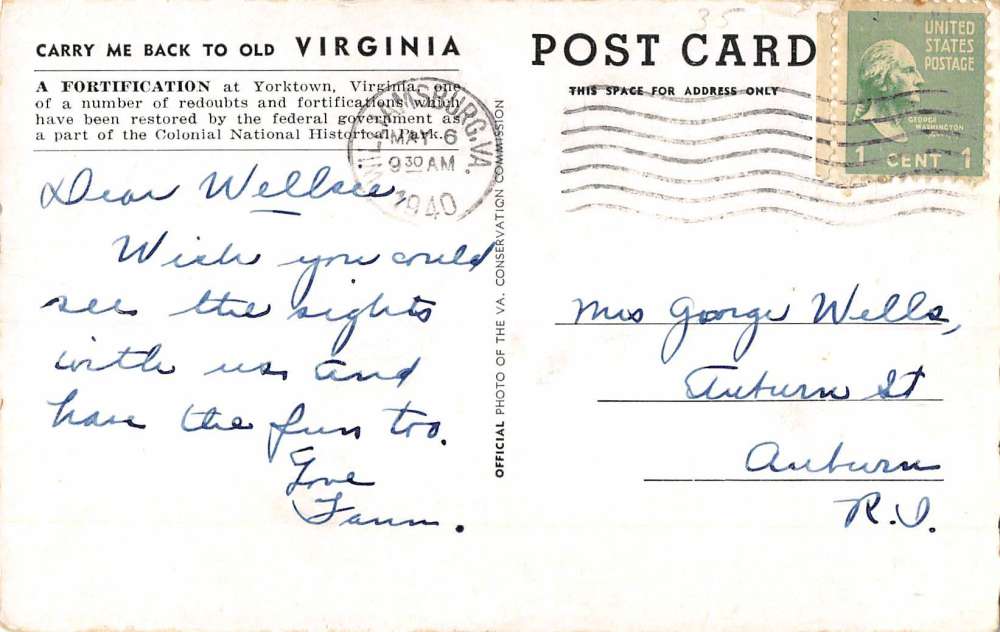 35
CARRY ME BACK TO OLD VIRGINIA
A FORTIFICATION at Yorktown, Virginia, one
of a number of redoubts and fortifications which
have been restored by the federal government as
a part of the Colonial National Historical Park.
WILLIAMSBURG, VA.
MAY 6
9 30 AM
1940
Dear
Wish you could
see the sights
with us and
have the fun too.
Love
OFFICIAL PHOTO OF THE VA. CONSERVATION COMMISSION
POST CARD
THIS SPACE FOR ADDRESS ONLY
UNITED
STATES
POSTAGE
GEORGE
WASHINGTON
1 CENT 1
Mrs George Wells,
Auburn St
Auburn
R.I.